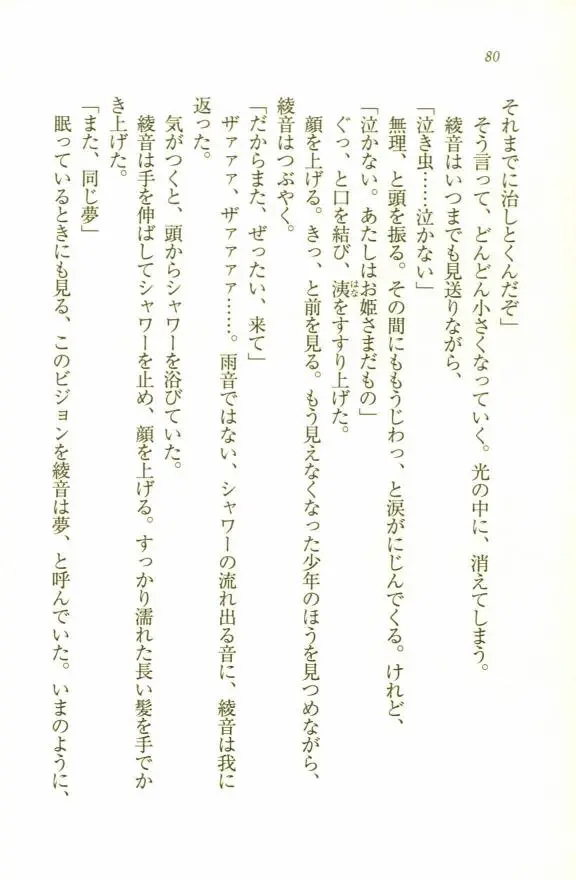 80
それまでに治しとくんだぞ」
そう言って、どんどん小さくなっていく。光の中に、消えてしまう。
綾音はいつまでも見送りながら、
「泣き虫……泣かない」
無理、と頭を振る。その間にももうじわっ、と涙がにじんでくる。けれど、
「泣かない。あたしはお姫さまだもの」
ぐっ、と口を結び、洟をすすり上げた。
はな
顔を上げる。きっ、と前を見る。もう見えなくなった少年のほうを見つめながら、
綾音はつぶやく。
「だからまた、ぜったい、来て」
ザァァァ、ザァァァァ……。雨音ではない、シャワーの流れ出る音に、綾音は我に
返った。
気がつくと、頭からシャワーを浴びていた。
綾音は手を伸ばしてシャワーを止め、顔を上げる。すっかり濡れた長い髪を手でか
き上げた。
「また、同じ夢」
眠っているときにも見る、このビジョンを綾音は夢、と呼んでいた。いまのように、